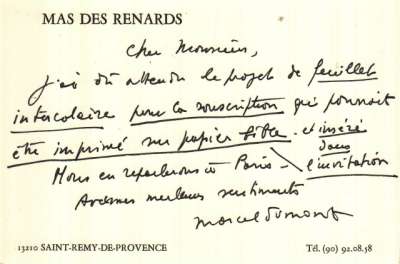 MAS DES RENARDS
Cher Monsieur,
J'ai dû attendre le projet de feuillet
intercalaire pour la souscription qui pourrait
être imprimé sur papier bible - et inséré
dans
Nous en reparlerons à Paris - l'invitation
Avec mes meilleurs sentiments
13210 SAINT-REMY-DE-PROVENCE
Tél. (90) 92.08.58